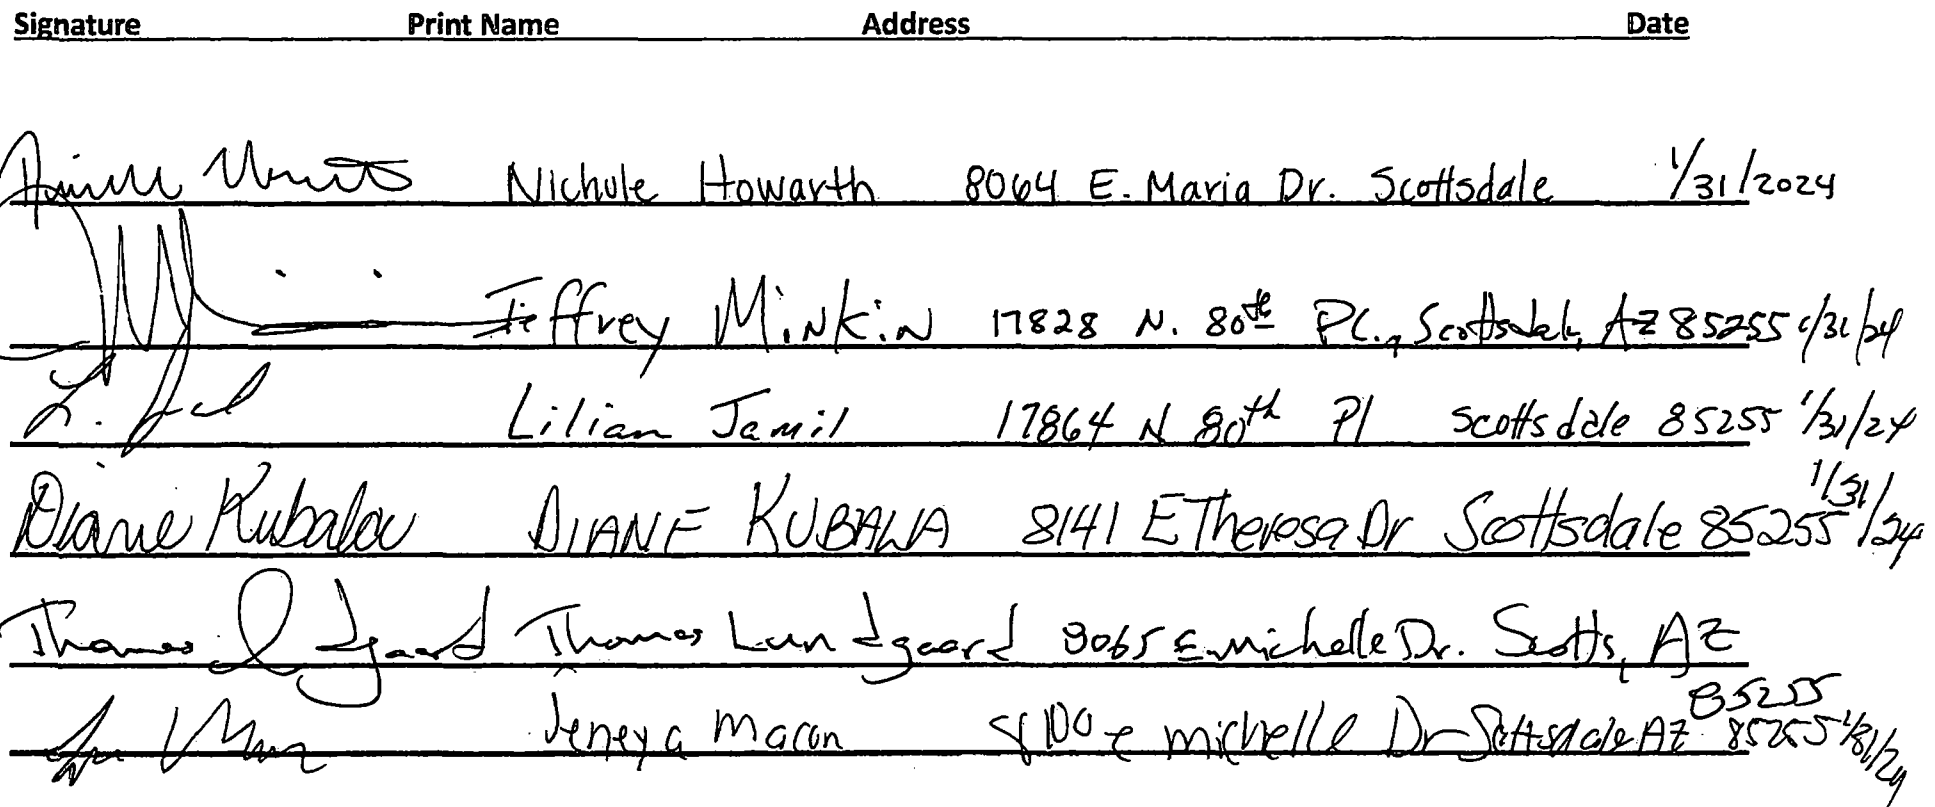 Signature Print Name Address Date
Nichole Howarth 8064 E. Maria Dr. Scottsdale 1/31/2024
Jeffrey Minkin 17828 N. 80th Pl., Scottsdale, AZ 85255 1/31/24
L. Lilian Jamil 17864 N 80th Pl Scottsdale 85255 1/31/24
Diane Kubala DIANE KUBALA 8141 E Theresa Dr Scottsdale 85255 1/31/24
Thomas Thomas Lundgaard 8065 E. Michelle Dr. Scotts, AZ
85255
Jeneya Macon 8100 e michelle Dr Scottsdale AZ 85255 1/31/24